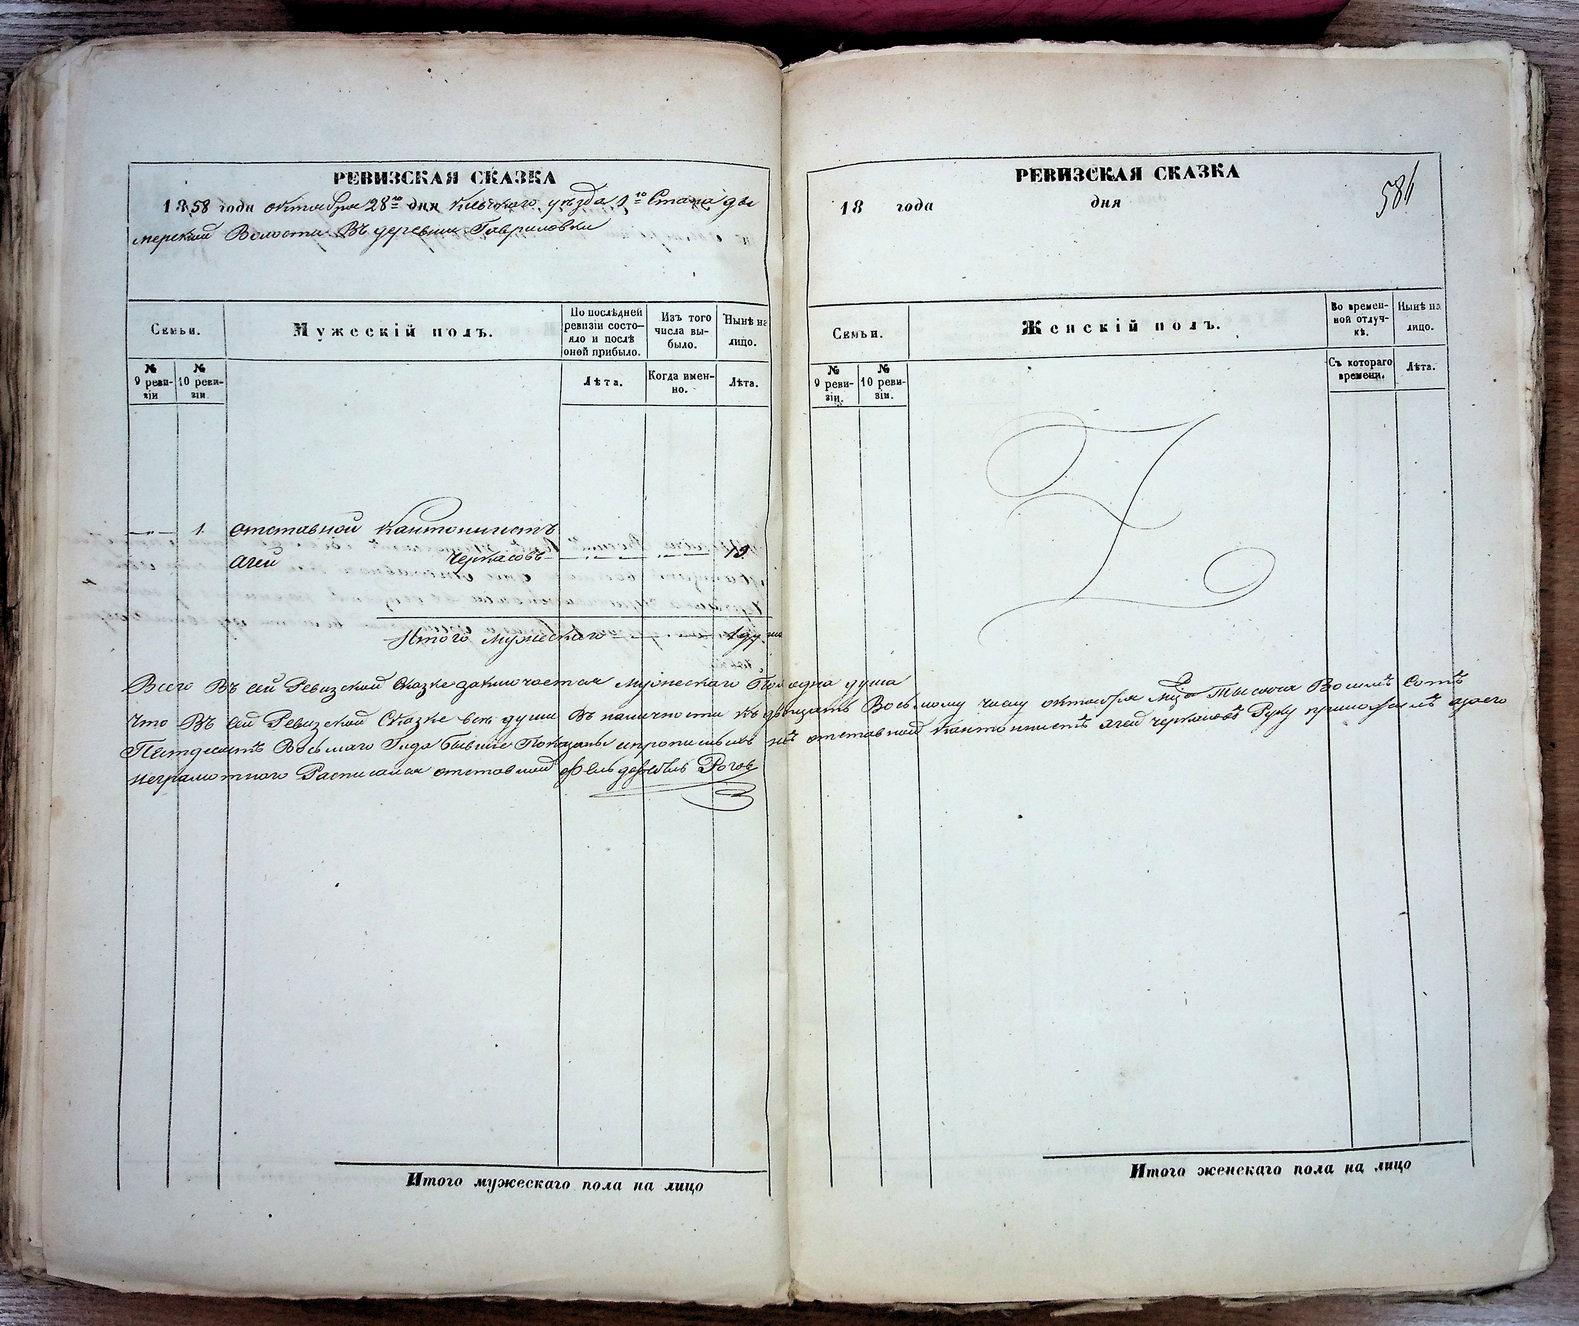 РЕВИЗСКАЯ СКАЗКА
1858 года октября 28го дня Киевского уезда 1го Стана ды
мерской Волости Въ деревни Гавриловки
Семьи.
Мужескій полъ.
По послѣдней ревизіи состо-
яло и послѣ оной прибыло.
Изъ того числа вы-
было.
Нынѣ на лицо.
№ 9 реви-
зіи
№ 10 реви-
зіи.
Лѣта.
Когда имен-
но.
Лѣта.
1. отставной кантонистъ
агей Черкасовъ 19
Итого мужеского 1 душа
Всего Въ сей Ревизской Сказке заключается мужескаго Пола одна душа
Что Въ сей Ревизской Сказке все души Въ наличности къ двадцать Восьмому числу октября Тысяча Восемь Сотъ
Пятдесятъ Восьмаго Года бывшие Показаны отставной кантонистъ агей черкасовъ Руку приложилъ а за его
неграмотного Расписался отставной Фельдфебель Рогов
Итого мужескаго пола на лицо
РЕВИЗСКАЯ СКАЗКА
18 года дня
581
Семьи.
Женскій полъ.
Во времен-
ной отлуч-
кѣ.
Нынѣ на лицо.
№ 9 реви-
зіи.
№ 10 реви-
зіи.
Съ котораго времени.
Лѣта.
Итого женскаго пола на лицо